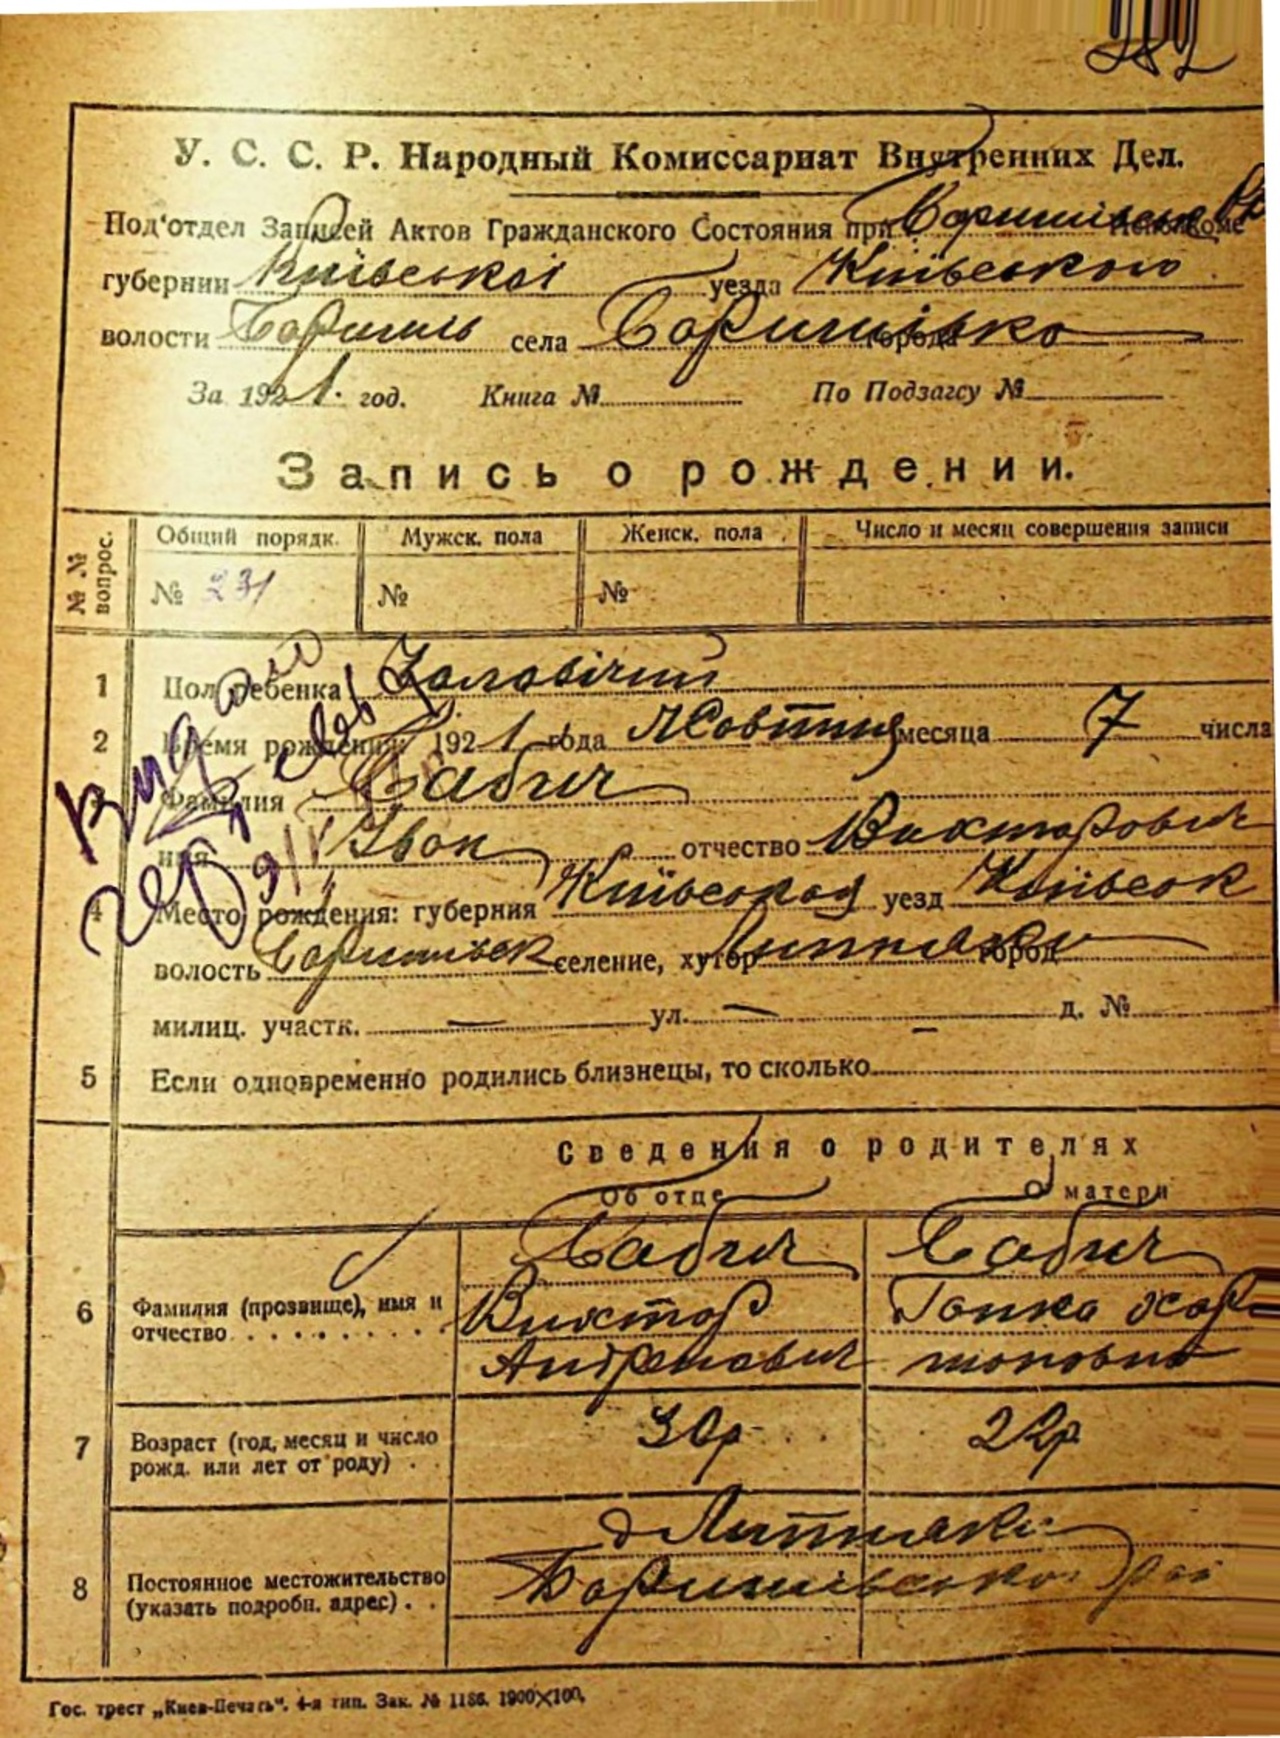 282
У. С. С. Р. Народный Комиссариат Внутренних Дел.
Под'отдел Записей Актов Гражданского Состояния при
губернии Київської уезда Київського
волости Бориспіль села города
За 1921. год. Книга № По Подзагсу №
Запись о рождении.
№№ вопрос. Общий порядк. Мужск. пола Женск. пола Число и месяц совершения записи
№ 231 № №
1 Пол ребенка Чоловічий
2 Время рождения: 1921 года Жовтня месяца 7 числа
3 Фамилия Бабич
имя Іван отчество Викторович
4 Место рождения: губерния уезд Київськ
волость селение, хутор город
милиц. участк. — ул. — д. № —
5 Если одновременно родились близнецы, то сколько
Сведения о родителях
Об отце О матери
6 Фамилия (прозвище), имя и отчество . . . . . . . . . Бабич Бабич
Виктор Гапка Хар
Андреевич тоновна
7 Возраст (год, месяц и число рожд. или лет от роду) . . 30р 22р
8 Постоянное местожительство (указать подробн. адрес) . .
Гос. трест „Киев-Печать". 4-я тип. Зак. № 1186. 1900×100.